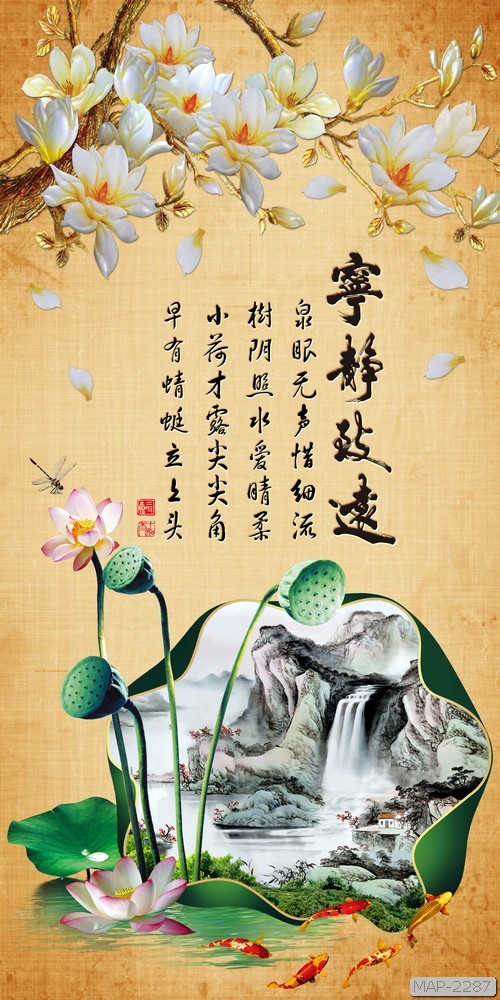 寧静致遠
泉眼无声惜细流
樹阴照水爱晴柔
小荷才露尖尖角
早有蜻蜓立上头
MAP-2287